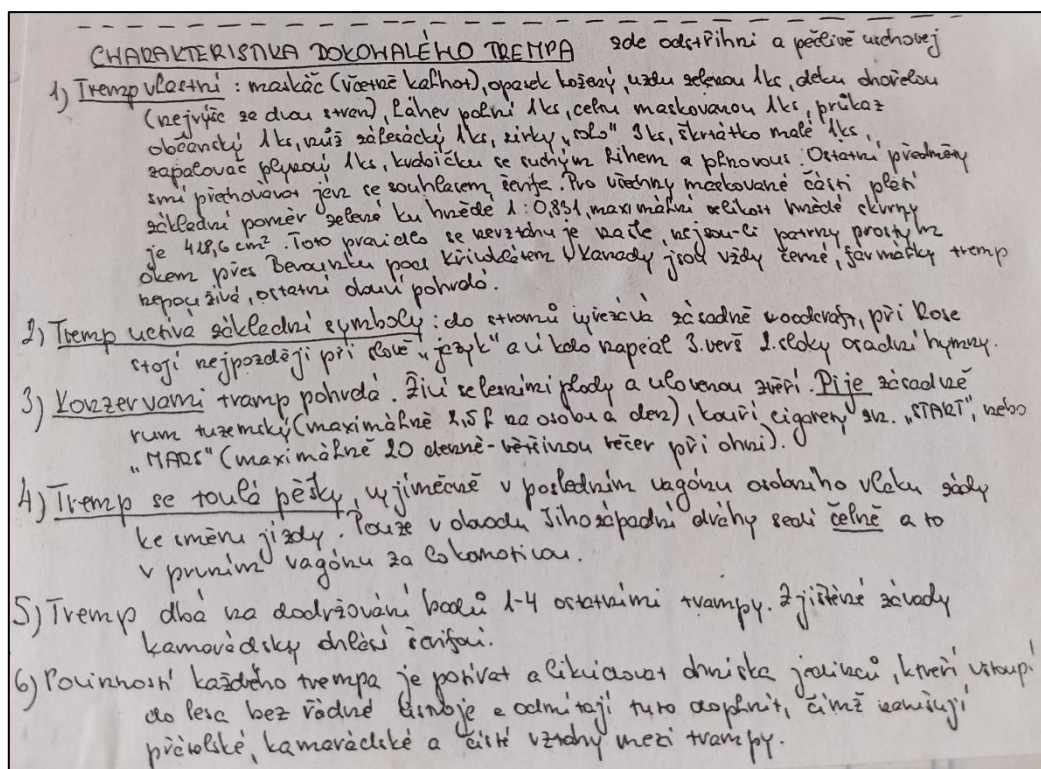 CHARAKTERISTIKA DOKONALÉHO TREMPA zde odstřihni a pečlivě uschovej
1) Tremp vlastní: maskáč (včetně kalhot), opasek kožený, uzdu zelenou 1ks, deku ohořelou
(nejvýše ze dvou stran), láhev polní 1ks, celtu maskovanou 1ks, průkaz
občanský 1ks, nůž zálesácký 1ks, sirky „solo" 3ks, škrtátko malé 1ks,
zapalovač plynový 1ks, kudličku se suchým lihem a plnovous. Ostatní předměty
smí přechovávat jen se souhlasem šerifa. Pro všechny maskované části platí
základní poměr zelené ku hnědé 1:0,831, maximální velikost hnědé skvrny
je 418,6 cm². Toto pravidlo se nevztahuje na, nejsou-li patrny prostým
okem přes Berounku pod Křivoklátem. Kanady jsou vždy černé, farmářky tremp
nepoužívá, ostatní obuví pohrdá.
2) Tremp uctívá základní symboly: do stromů vyřezává zásadně woodcraft, při Rose
stojí nejpozději při slově „jazyk" a nikdo napěal 3. verš 2. sloky osadní hymny.
3) Konzervami tramp pohrdá. Živí se lesními plody a ulovenou zvěří. Pije zásadně
rum tuzemský (maximálně 2,5 l na osobu a den), kouří cigarety zn. „START", nebo
„MARS" (maximálně 20 denně - většinou večer při ohni).
4) Tremp se toulá pěšky, vyjímečně v posledním vagónu osobního vlaku zády
ke směru jízdy. Pouze v obvodu Jihozápadní dráhy sedí čelně a to
v prvním vagónu za lokomotivou.
5) Tremp dbá na dodržování bodů 1-4 ostatními trampy. Zjištěné závady
kamarádsky ohlásí šerifovi.
6) Povinností každého trempa je potírat a likvidovat ohniska jedinců, kteří vstoupí
do lesa bez řádné ústroje a odmítají tuto doplnit, čímž narušují
přátelské, kamarádské a čisté vztahy mezi trampy.